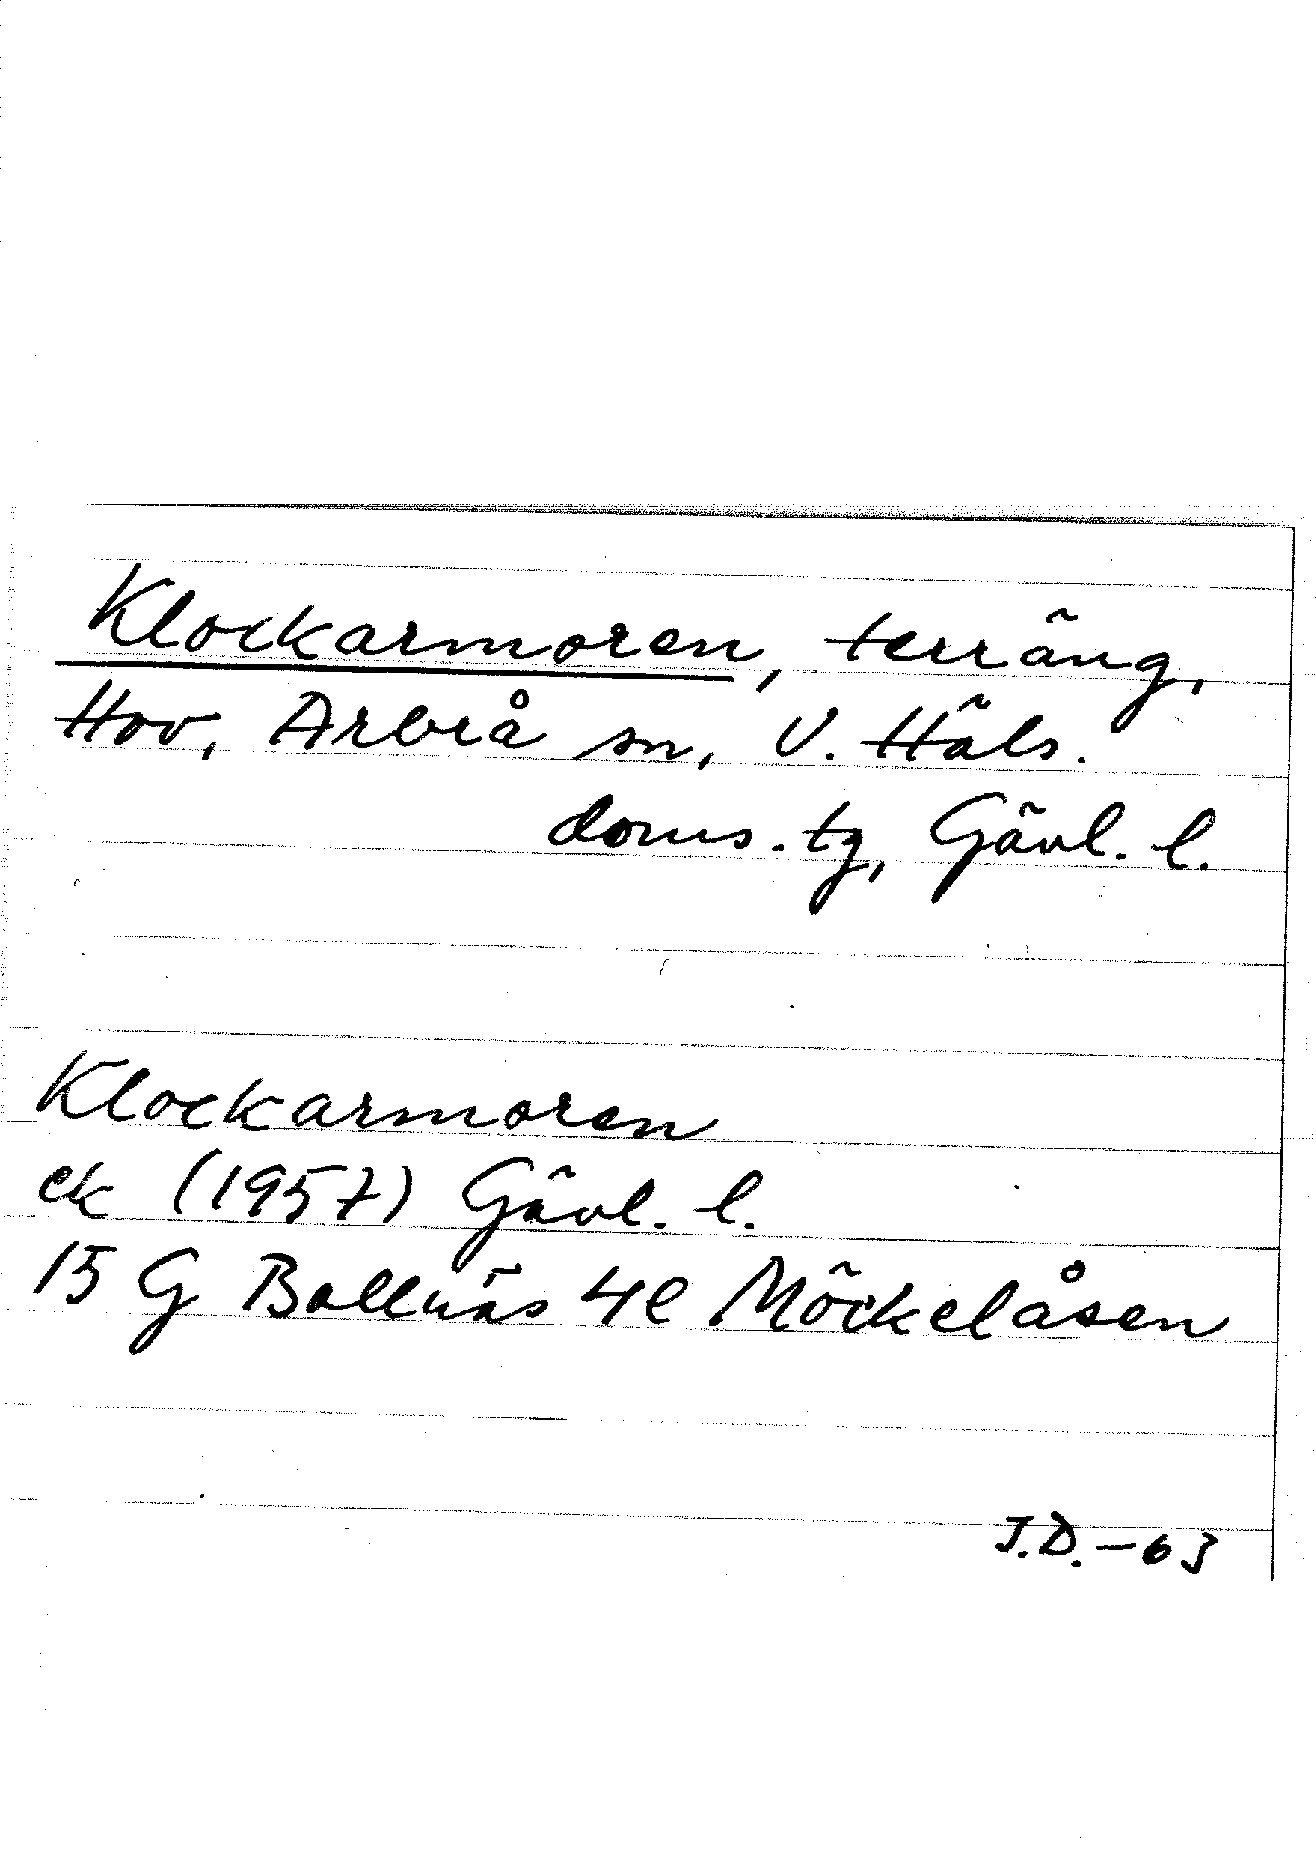 Klockarmoren, terräng,
Hov, Arbrå sn, V. Häls.
doms. tg, Gävl. l.
Klockarmoren
ek (1957) Gävl. l.
15 G Bollnäs 4e Möckelåsen
J.D.-63